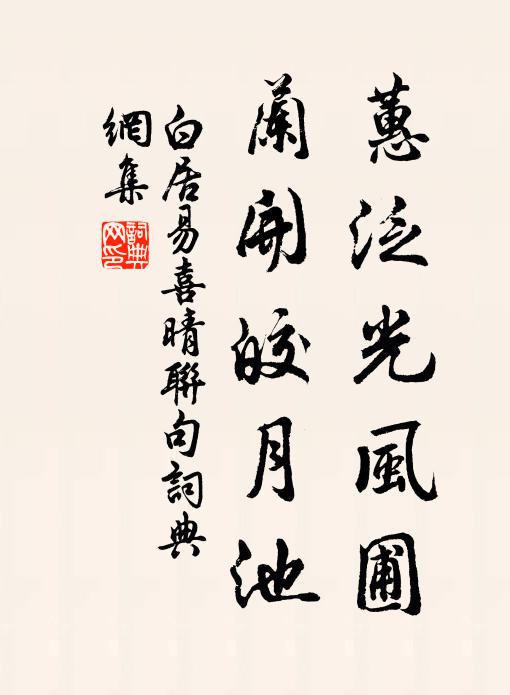 蕙泛光風圃
蘭開皎月池
白居易喜晴聯句詞典
網集
詞典網印